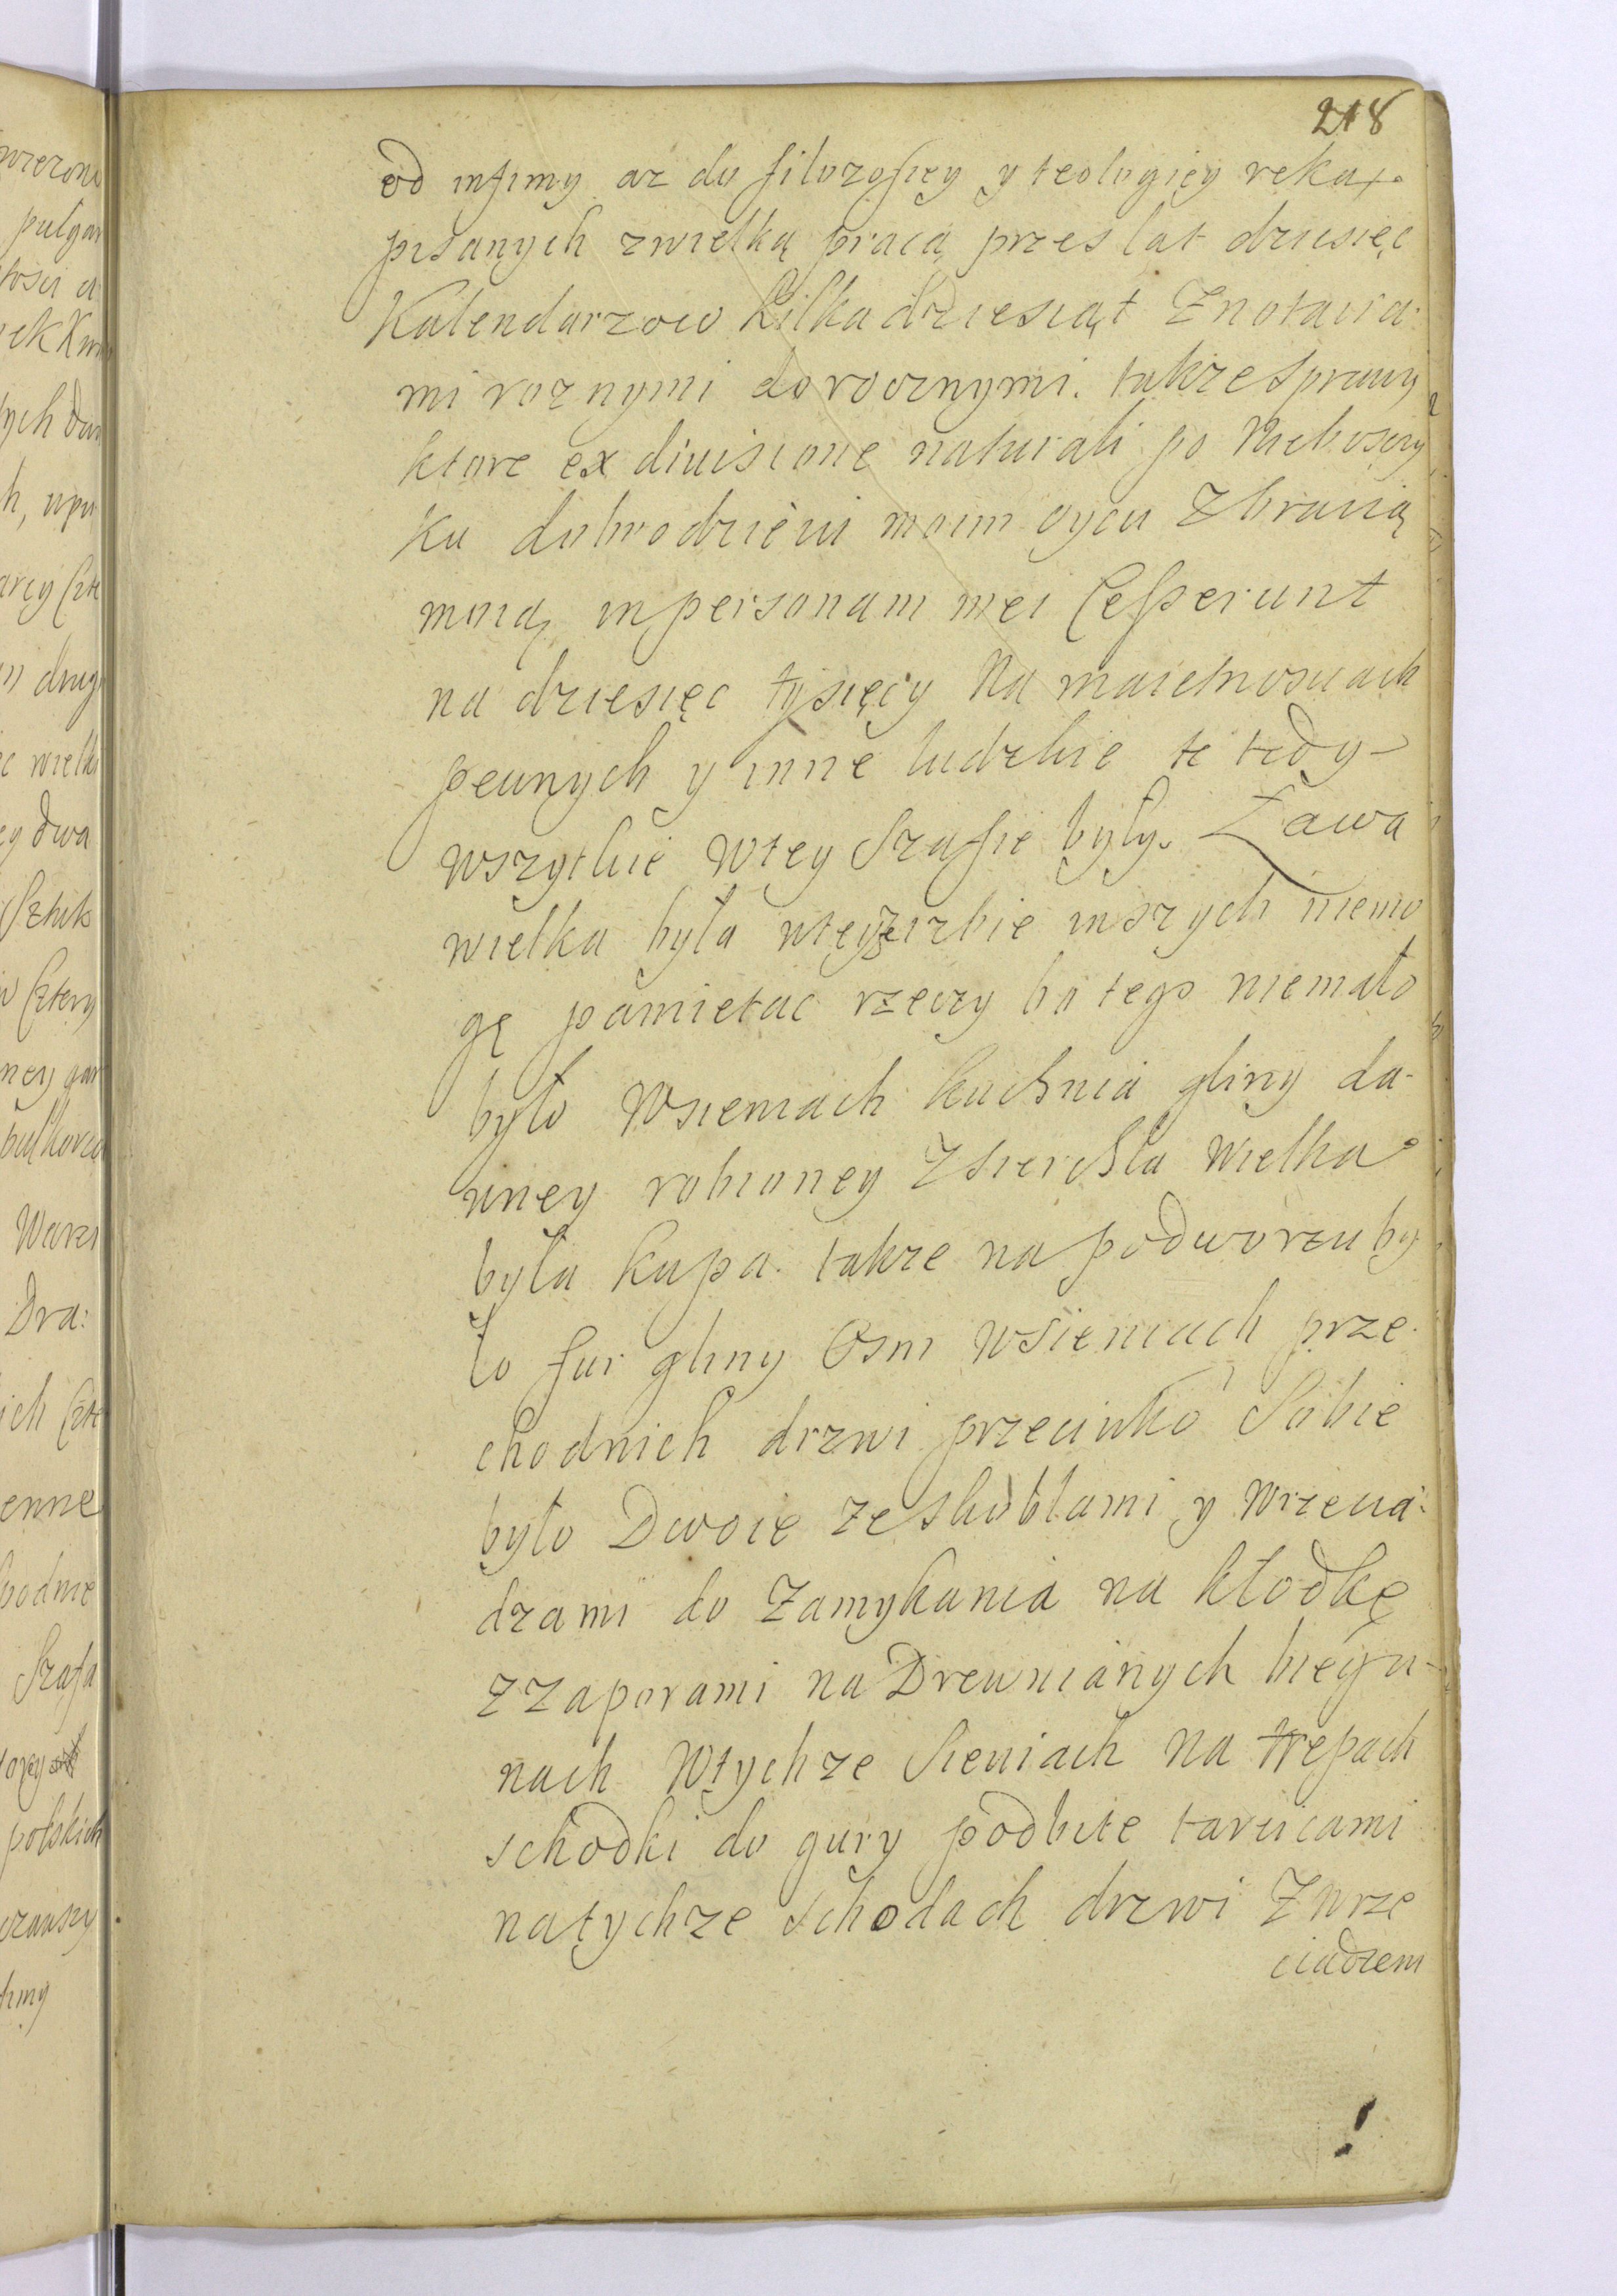 218
od infimy az do filozofięy y teologięy ręką
pisanych zwielką pracą przes lat dziesięc
Kalendarzow kilkadziesiąt Znotacia
mi roznymi dorocznymi. takze sprawy
ktore ex diuisione naturali po Nieboszczy
ku dobrodzieiu moim oycu Zbracią
moią in personam mei Cesserunt
na dziesięc tysięcy Na maietnosciach
pewnych y inne ludzkie te tedy
wszytkie wtey Szafie były. Ława
wielka była wteyze izbie inszych niemo
gę pamietac rzeczy bo tego niemało
było Wsieniach kuchnia gliny da-
wney robioney Zbierchla wielka
była kupa. takze na podworzu by
ło fur gliny Osm wsieniach prze
chodnich drzwi przeciwko Sobie
było Dwoie ze skoblami y wrzecią:
dzami do Zamykania na kłodkę
z zaporami na Drewnianych biegu-
nach Wtychze Sieniach na trepach
schodki do gury podbite tarcicami
natychze schodach drzwi Zwrze
ciadzem
wielki
dwa
Sztuk
Cztery
Dra:
Szafa
polskich